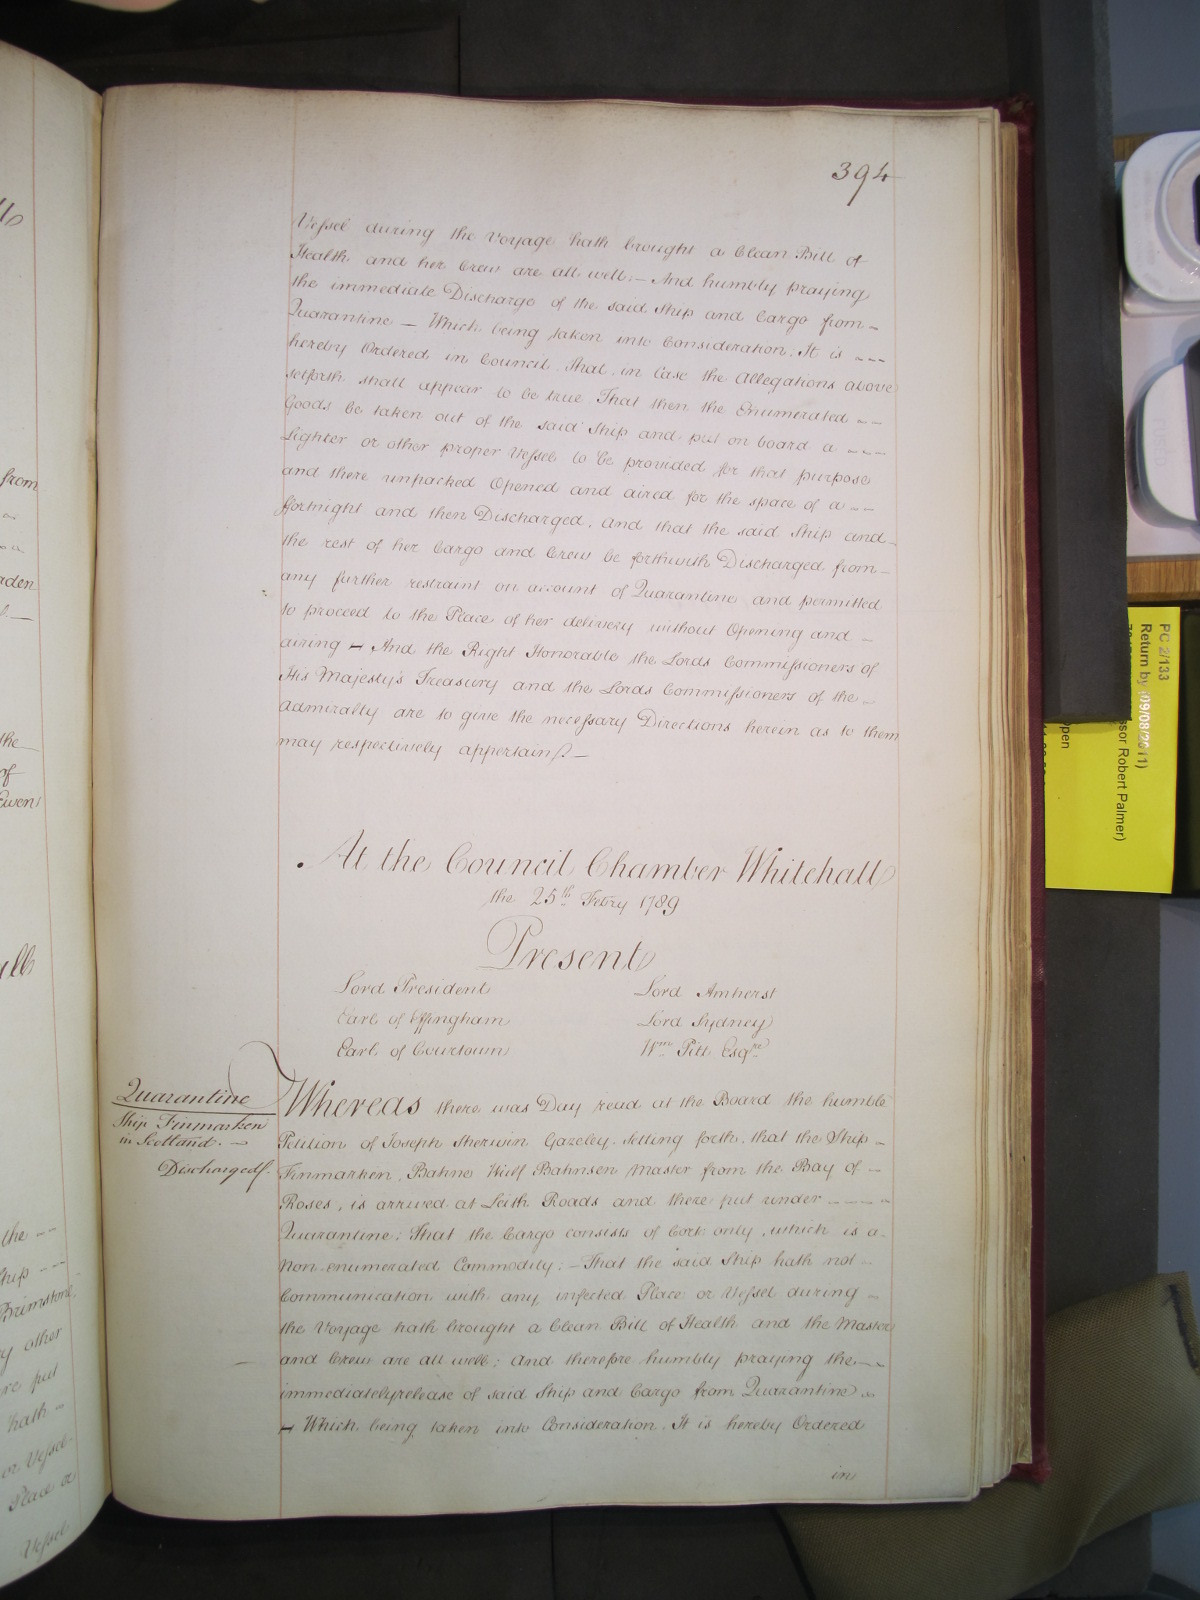 394
Vessel during the Voyage hath brought a Clean Bill of
Health and her Crew are all well:— And humbly praying
the immediate Discharge of the said Ship and Cargo from—
Quarantine — Which being taken into Consideration: It is ---
hereby Ordered in Council. That, in Case the Allegations above
setforth shall appear to be true. That then the Enumerated --
Goods be taken out of the said Ship and put on board a ---
Lighter or other proper Vessel to be provided for that purpose
and there unpacked Opened and aired for the space of a --
ffortnight and then Discharged, and that the said Ship and-
the rest of her Cargo and Crew be forthwith Discharged from—
any further restraint on account of Quarantine and permitted
to proceed to the Place of her delivery without Opening and —
airing — And the Right Honorable the Lords Commissioners of
His Majesty's Treasury and the Lords Commissioners of the -
Admiralty are to give the necessary Directions herein as to them
may respectively appertain.—
At the Council Chamber Whitehall
the 25th. Febry 1789
Present
Lord President Lord Amherst
Earl of Effingham Lord Sydney
Earl of Courtown Wm Pitt Esqre
Quarantine
Ship Finmarken
in Scotland. —
Discharged
Whereas there was Day read at the Board the humble
Petition of Joseph Sherwin Gazeley. setting forth. that the Ship -
Finmarken, Bahne Wulf Bahnsen Master from the Bay of --
Roses, is arrived at Leith Roads and there put under ----
Quarantine: That the Cargo consists of Cork only, which is a-
Non-enumerated Commodity: — That the said Ship hath not -
Communication with any infected Place or Vessel during -
the Voyage hath brought a Clean Bill of Health and the Master
and Crew are all well; And therefore humbly praying the --
immediately release of said Ship and Cargo from Quarantine -
— Which being taken into Consideration. It is hereby Ordered
in
from
aden
the
of
the --
Ship --
Brimstone,
other
put
hath -
or Vessel
Place or
Vessel
PC 2/133
Return by (09/08/2011)
ssor Robert Palmer)
pen